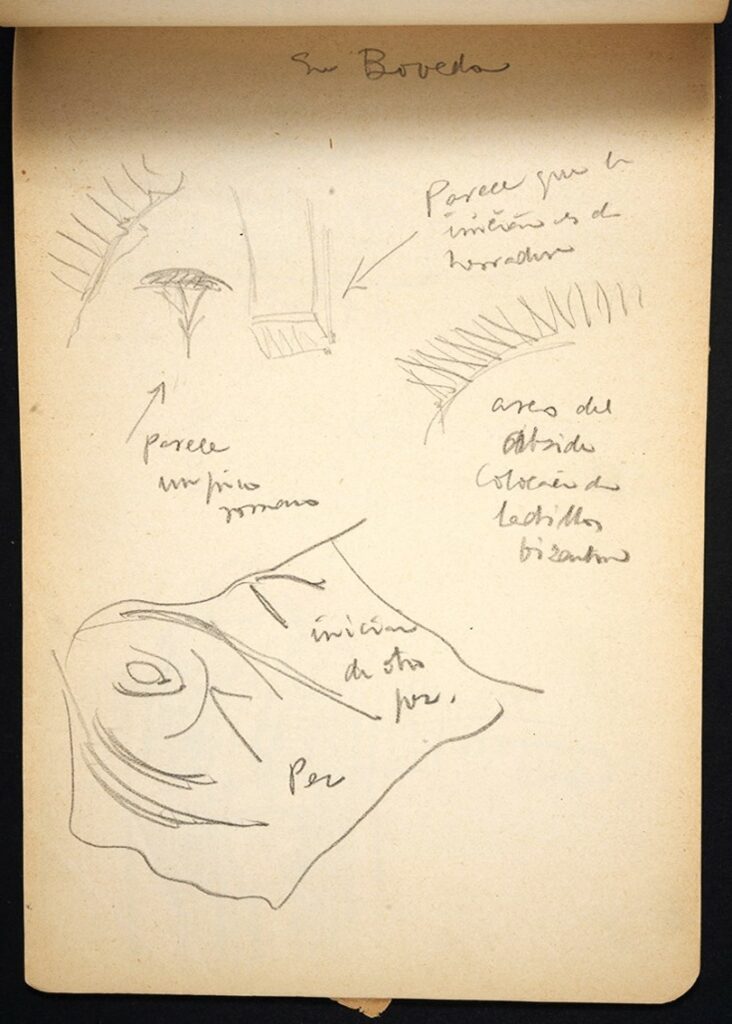 En Boveda
Parece que la
iniciación es de
herradura
arcos del
Abside
Colocación de
ladrillos
bizantino
parece
un pino
romano
iniciación
de otro
pez.
Pez